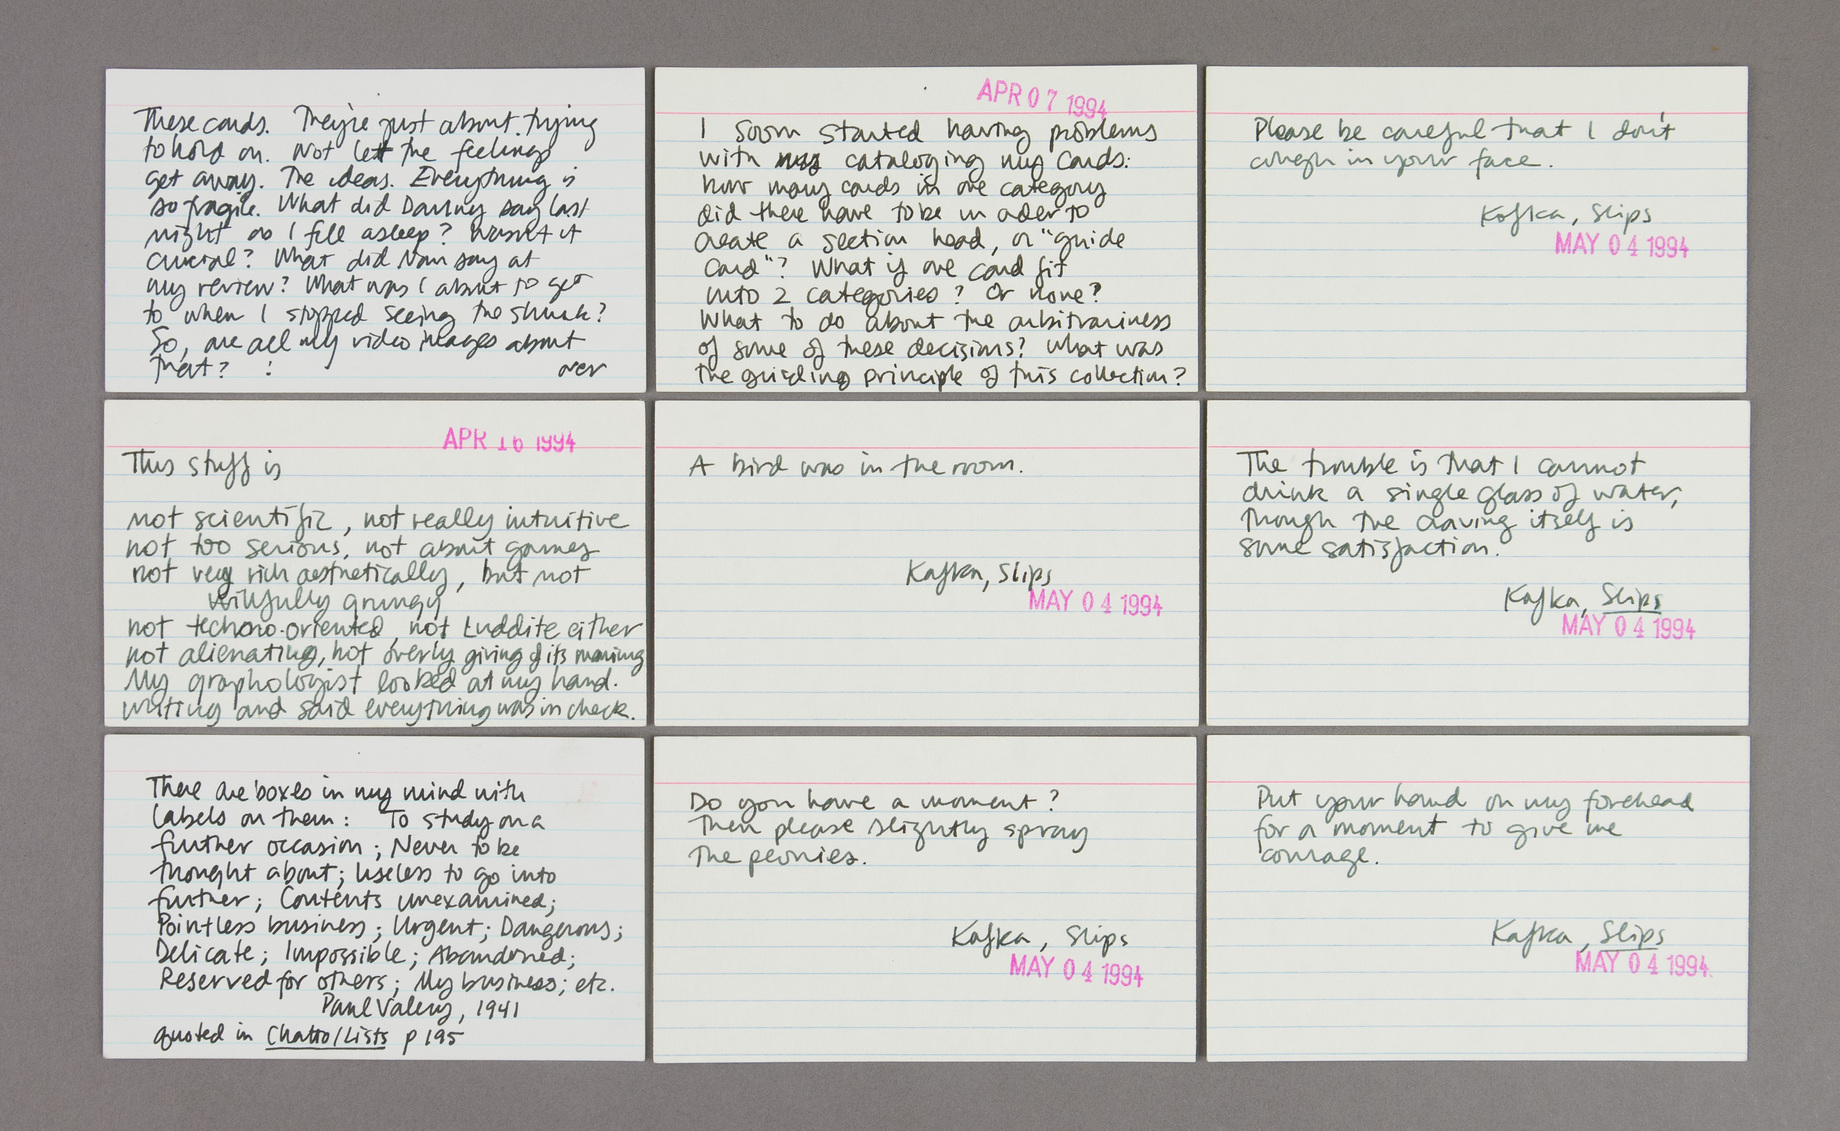 These cards. They're just about trying
to hold on. Not let the feelings
get away. The ideas. Everything is
so fragile. What did Danny say last
night as I fell asleep? Wasn't it
crucial? What did Nan say at
my review? What was I about to get
to when I stopped seeing the shrink?
So, are all my video images about
that? :
over
APR 07 1994
I soon started having problems
with my cataloging my cards:
how many cards in one category
did there have to be in order to
create a section head, or "guide
card"? What if one card fit
into 2 categories? Or none?
What to do about the arbitrariness
of some of these decisions? What was
the guiding principle of this collection?
Please be careful that I don't
cough in your face.
Kafka, Slips
MAY 04 1994
APR 16 1994
This stuff is
not scientific, not really intuitive
not too serious, not about games
not very rich aesthetically, but not
willfully grungy
not techno-oriented, not Luddite either
not alienating, not overly giving of its meaning
My graphologist looked at my hand-
writing and said everything was in check.
A bird was in the room.
Kafka, Slips
MAY 04 1994
The trouble is that I cannot
drink a single glass of water,
though the craving itself is
some satisfaction.
Kafka, Slips
MAY 04 1994
There are boxes in my mind with
labels on them: To study on a
further occasion; Never to be
thought about; Useless to go into
further; Contents unexamined;
Pointless business; Urgent; Dangerous;
Delicate; Impossible; Abandoned;
Reserved for others; My business; etc.
Paul Valery, 1941
quoted in Chatto/Lists p 195
Do you have a moment?
Then please slightly spray
the peonies.
Kafka, Slips
MAY 04 1994
Put your hand on my forehead
for a moment to give me
courage.
Kafka, Slips
MAY 04 1994